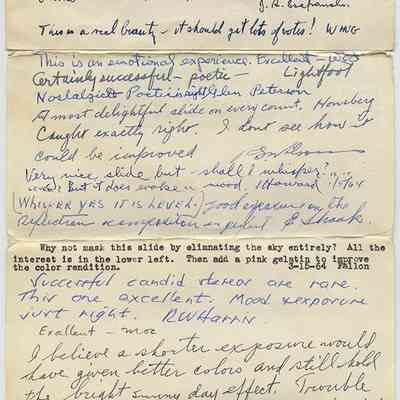 This is a real beauty - it should get lots of votes! WHG
This is an emotional experience. Excellent -
Certainly successful - poetic - Lightfoot
Nostalgic Poetic insight Glen Peterson
A most delightful slide on every count. Honsberg
Caught exactly right. I dont see how it
could be improved
Very nice, slide but - shall I whisper? ....
level. But it does evoke a mood. Howard 1/5/64
(WHISPER YES IT IS LEVEL.) Good exposure on the
reflection & composition is great E Shaak.
Why not mask this slide by elimnating the sky entirely? All the
interest is in the lower left. Then add a pink gelatin to improve
the color rendition. 3-15-64 Fallon
Successful candid stereos are rare.
This one excellent. Mood & exposure
just right. RW Harris
Excellent - moc
I believe a shorter exposure would
have given better colors and still held
the bright sunny day effect. Trouble